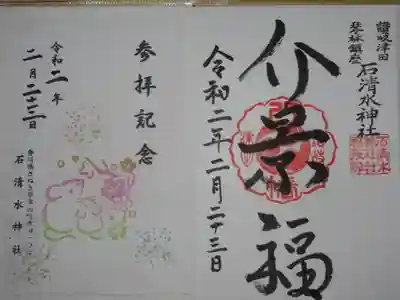 讃岐津田
琴林鎮座
石清水神社
介景福
令和二年二月二十三日
参拝記念
令和二年
二月二十三日
石清水神社